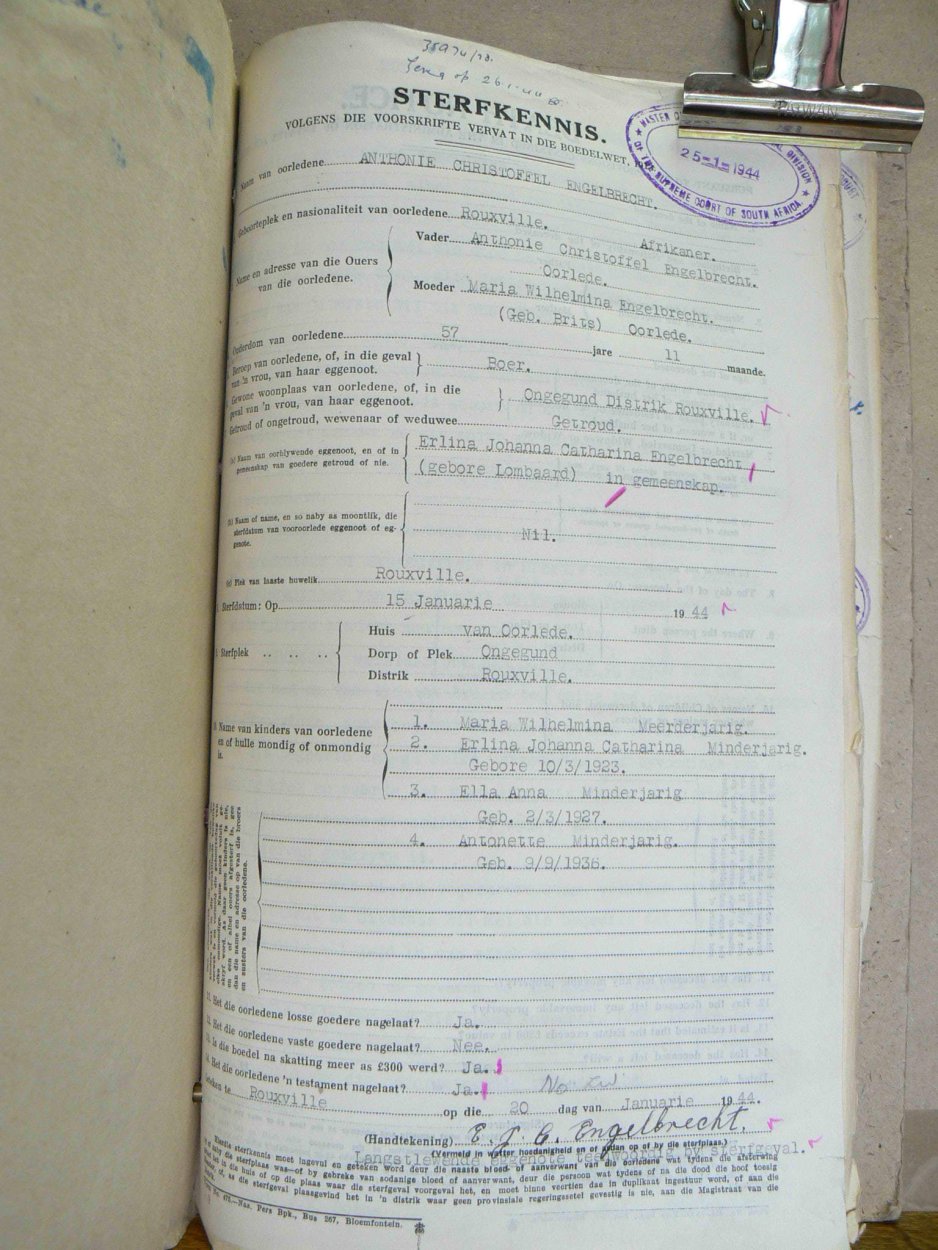 STERFKENNIS.
VOLGENS DIE VOORSKRIFTE VERVAT IN DIE BOEDELWET,
PATWAN
25-1-1944
OF THE SUPREME COURT OF SOUTH AFRICA.
Naam van oorledene ANTHONIE CHRISTOFFEL ENGELBRECHT.
Geboorteplek en nasionaliteit van oorledene Rouxville. Afrikaner.
Name en adresse van die Ouers van die oorledene.
Vader Anthonie Christoffel Engelbrecht.
Oorlede.
Moeder Maria Wilhelmina Engelbrecht.
(Geb. Brits) Oorlede.
Ouderdom van oorledene 57 jare 11 maande.
Beroep van oorledene, of, in die geval
van 'n vrou, van haar eggenoot. Boer.
Gewone woonplaas van oorledene, of, in die
geval van 'n vrou, van haar eggenoot. Ongegund Distrik Rouxville.
Getroud of ongetroud, wewenaar of weduwee Getroud.
(a) Naam van oorblywende eggenoot, en of in
gemeenskap van goedere getroud of nie.
Erlina Johanna Catharina Engelbrecht
(gebore Lombaard) in gemeenskap.
(b) Naam of name, en so naby as moontlik, die
sterfdatum van vooroorlede eggenoot of eg-
genote.
Nil.
(c) Plek van laaste huwelik Rouxville.
Sterfdatum: Op 15 Januarie 1944
Sterfplek
Huis van Oorlede.
Dorp of Plek Ongegund
Distrik Rouxville.
Name van kinders van oorledene
en of hulle mondig of onmondig
is.
1. Maria Wilhelmina Meerderjarig.
2. Erlina Johanna Catharina Minderjarig.
Gebore 10/3/1923.
3. Ella Anna Minderjarig
Geb. 2/3/1927.
4. Antonette Minderjarig.
Geb. 9/9/1936.
dan die name en adresse op van die broers
en susters van die oorledene.
11. Het die oorledene losse goedere nagelaat? Ja.
12. Het die oorledene vaste goedere nagelaat? Nee.
13. Is die boedel na skatting meer as £300 werd? Ja.
14. Het die oorledene 'n testament nagelaat? Ja.
Rouxville op die 20 dag van Januarie 1944.
(Handtekening) E. J. C. Engelbrecht.
(Vermeld in watter hoedanigheid en of aldan op of by die sterfplaas.)
Langstlewende eggenote teenwoordig by sterfgeval.
Hierdie sterfkennis moet ingevul en geteken word deur die naaste bloed- of aanverwant van die oorledene wat tydens die afsterwing
of naby die sterfplaas was—of by gebreke van sodanige bloed- of aanverwant, deur die persoon wat tydens of na die dood die hoof toesig
het in die huis of op die plaas waar die sterfgeval voorgeval het, en moet binne veertien dae in duplikaat ingestuur word, of aan die
of, as die sterfgeval plaasgevind het in 'n distrik waar geen provinsiale regeringsetel gevestig is nie, aan die Magistraat van die
Nas. Pers Bpk., Bus 267, Bloemfontein.